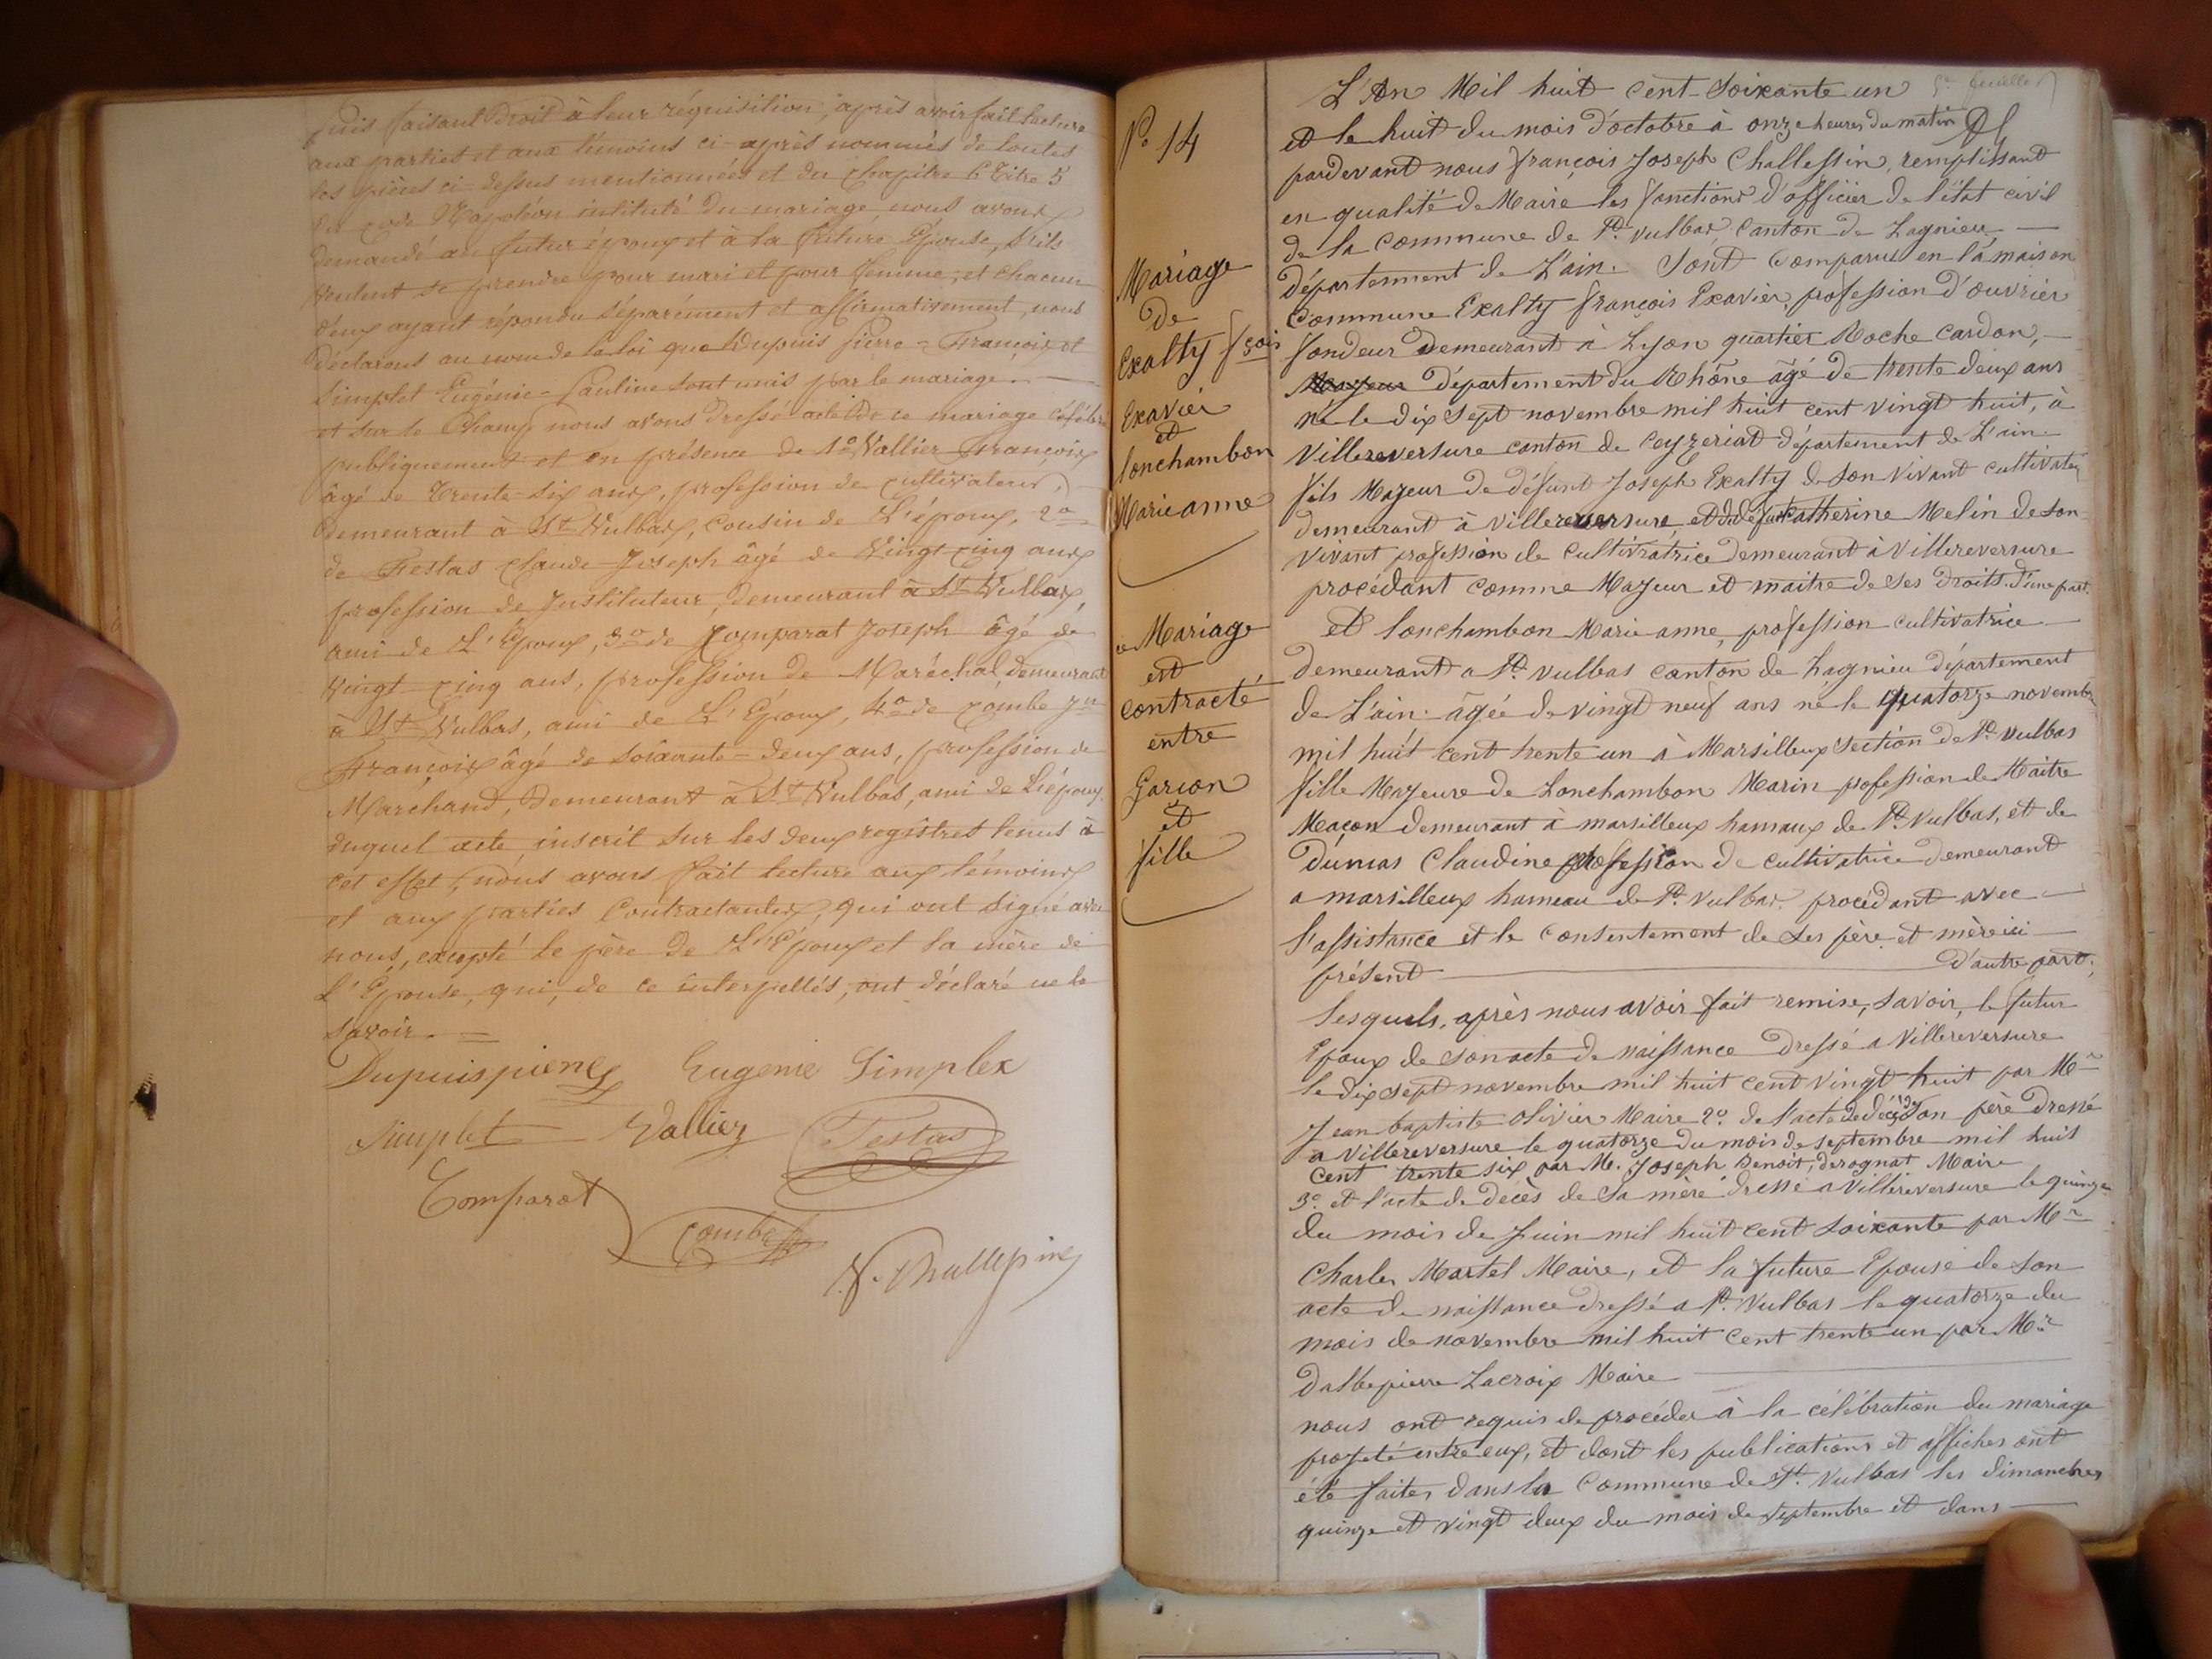 puis faisant Droit à leur réquisition, après avoir fait lecture
aux parties et aux témoins ci-après nommés de toutes
les pièces ci-dessus mentionnées et du chapitre 6 titre 5
du code Napoléon intitulé du mariage, nous avons
demandé au futur époux et à la future Epouse, s'ils
veulent se prendre pour mari et pour femme, et chacun
d'eux ayant répondu séparément et affirmativement, nous
déclarons au nom de la loi que Dupuis pierre-François et
Simplet Eugénie-Pauline sont unis par le mariage.
et sur le champ nous avons dressé acte de ce mariage célébré
publiquement et en présence de 1o Vallier François
âgé de trente-six ans, profession de cultivateur,
demeurant à St Vulbas, cousin de L'époux, 2o
de Festas claude-Joseph âgé de Vingt-cinq ans
profession de Instituteur, demeurant à St Vulbas,
ami de L'Epoux, 3o de Comparat Joseph âgé de
vingt cinq ans, profession de Maréchal, demeurant
à St Vulbas, ami de L'Epoux, 4o de Combe
François âgé de soixante=deux ans, profession de
Marchand, Demeurant à St Vulbas, ami de L'époux
duquel acte, inscrit sur les deux registres tenus à
cet effet, nous avons fait lecture aux témoins
et aux parties Contractantes, qui ont signé avec
nous, excepté le père de L'Epoux et la mère de
L'Epouse, qui, de ce interpellés, ont déclaré ne le
savoir.
Dupuis pierre Eugenie Simplex
Simplet Vallier Festas
Comparat
Combe
N° 14
Mariage
de
Exalty fçois
Exavier
et
Lonchambon
Marie anne
ce Mariage
est
contracté
entre
Garson
et
fille
L'An Mil huit cent Soixante un
et le huit du mois d'octobre à onze heures du matin
pardevant nous françois Joseph Challessin, remplissant
en qualité de Maire les fonctions d'officier de l'état civil
de la commune de St. vulbas, canton de Lagnieu,
département de L'ain. Sont Comparus en la maison
Commune Exalty françois Exavier, profession d'ouvrier
fondeur demeurant à Lyon quartier Roche cardon,
département du Rhône âgé de trente deux ans
né le dix sept novembre mil huit cent vingt huit, à
Villereversure canton de Ceyzeriat département de L'ain
fils Majeur de défunt Joseph Exalty de son Vivant cultivateur
demeurant à Villereversure, et de défunte Catherine Melin de son
vivant profession de Cultivatrice demeurant à Villereversure
procédant comme Majeur et maitre de ses droits. d'une part.
et Lonchambon Marie anne, profession cultivatrice
demeurant a St. vulbas canton de Lagnieu département
de L'ain. âgée de vingt neuf ans né le quatorze novembre
mil huit cent trente un à Marsilleux Section de St. vulbas
fille Majeure de Lonchambon Marin profession de Maitre
Maçon demeurant à marsilleux hamaux de St. Vulbas, et de
Dumas Claudine profession de cultivatrice demeurant
a marsilleux hameau de St. vulbas. procédant avec
l'assistance et le consentement de ses père et mère ici
présent d'autre part;
Lesquels, après nous avoir fait remise, savoir, le futur
Epoux de son acte de naissance Dressé a Villereversure
le dix sept novembre mil huit cent Vingt huit par Mr
Jean baptiste Olivier Maire 2o. de l'acte de décès de son père dressé
a Villereversure le quatorze du mois de septembre mil huit
cent trente six par M. Joseph Benoit, derognat Maire
3o. et l'acte de décès de sa mère dressé a Villereversure le quinze
du mois de Juin mil huit cent soixante par Mr
Charles Martel Maire, et la future Epouse de son
acte de naissance dressé a St. Vulbas le quatorze du
mois de novembre mil huit cent trente un par Mr
Dalbepierre Lacroix Maire
nous ont requis de procéder à la célébration du mariage
projeté entre eux, et dont les publications et affiches ont
été faites dans la Commune de St. Vulbas les dimanches
quinze et vingt deux du mois de septembre et dans